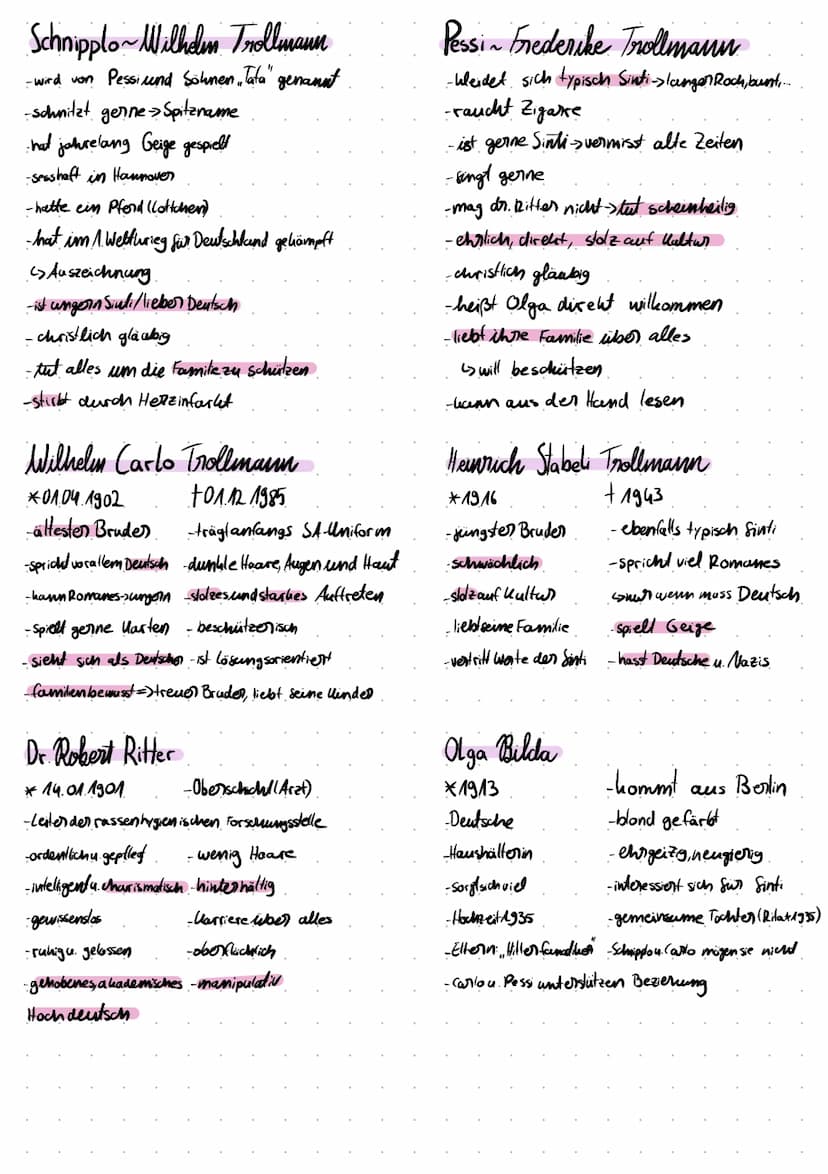 Schnipplo ~ Wilhelm Trollmann
-wird von Pessi und Söhnen „Tata" genannt
-schnitzt gerne → Spitzname
-hat jahrelang Geige gespielt
-sesshaft in Hannover
-hatte ein Pferd (Lottchen)
-hat im 1. Weltkrieg für Deutschland gekämpft
↳ Auszeichnung
-ist ungern Sinti/lieber Deutsch
- christlich gläubig
-tut alles um die Familie zu schützen
-stirbt durch Herzinfarkt
Pessi ~ Frederike Trollmann
-kleidet sich typisch Sinti → langer Rock, bunt,...
-raucht Zigarre
-ist gerne Sinti → vermisst alte Zeiten
-singt gerne
-mag dr. Ritter nicht → tut scheinheilig
-ehrlich, direkt, stolz auf Kultur
-christlich gläubig
-heißt Olga direkt willkommen
-liebt ihre Familie über alles
↳ will beschützen
-kann aus der Hand lesen
Wilhelm Carlo Trollmann
*01.04.1902 †01.12.1985
-ältester Bruder -trägt anfangs SA-Uniform
-spricht vor allem Deutsch -dunkle Haare, Augen und Haut
-kann Romanes → ungern -stolzes und starkes Auftreten
-spielt gerne Karten - beschützerisch
-sieht sich als Deutscher -ist lösungsorientiert
-familienbewusst => treuer Bruder, liebt seine Kinder
Heinrich Stabeli Trollmann
*1916 †1943
-jüngster Bruder - ebenfalls typisch Sinti
-schwächlich -spricht viel Romanes
-stolz auf Kultur ↳ nur wenn muss Deutsch
-liebt seine Familie -spielt Geige
-vertritt Werte der Sinti -hasst Deutsche u. Nazis
Dr. Robert Ritter
* 14.01.1901 -Oberschicht (Arzt)
-Leiter der rassenhygienischen Forschungsstelle
-ordentlich u. gepflegt - wenig Haare
-intelligent u. charismatisch -hinterhältig
-gewissenslos -Karriere über alles
-ruhig u. gelassen -oberflächlich
-gehobenes, akademisches -manipulativ
Hochdeutsch
Olga Bilda
*1913 -kommt aus Berlin
-Deutsche -blond gefärbt
-Haushälterin -ehrgeizig, neugierig
-sorgt sich viel -interessiert sich für Sinti
-Hochzeit 1935 -gemeinsame Tochter (Rita *1935)
-Eltern: „Hitlerfamilie" -Schnipplo u. Carlo mögen sie nicht
-Carlo u. Pessi unterstützen Bezierung